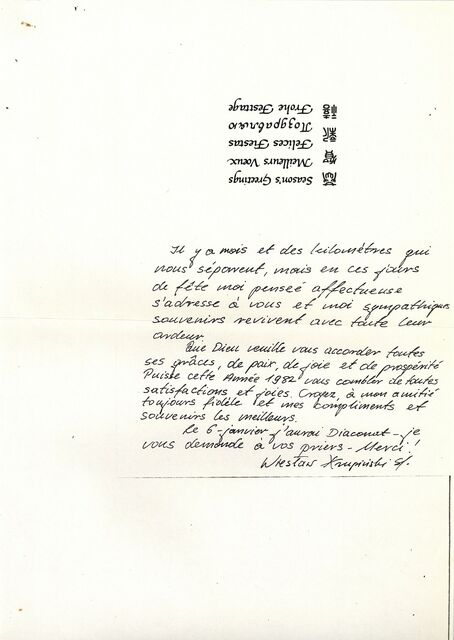 Season's Greetings
Meilleurs Vœux
Felices Fiestas
Поздравляю
Frohe Festtage
恭賀新禧
Il y a mois et des kilométres qui
nous séparent, mais en ces jours
de fête moi penseé affectueuse
s'adresse à vous et moi sympathiques
souvenirs revivent avec toute leur
ardeur.
Que Dieu veuille vous accorder toutes
ses grâces, de paix, de joie et de prospérité
Puisse cette Année 1982 vous combler de toutes
satisfactions et joies. Croyez, à mon amitié
toujours fidèle et mes compliments et
souvenirs les meilleurs.
Le 6-janvier-j'aurai Diaconat-je
vous demande à vos priers-Merci!
Wiesław Krupiński SJ.